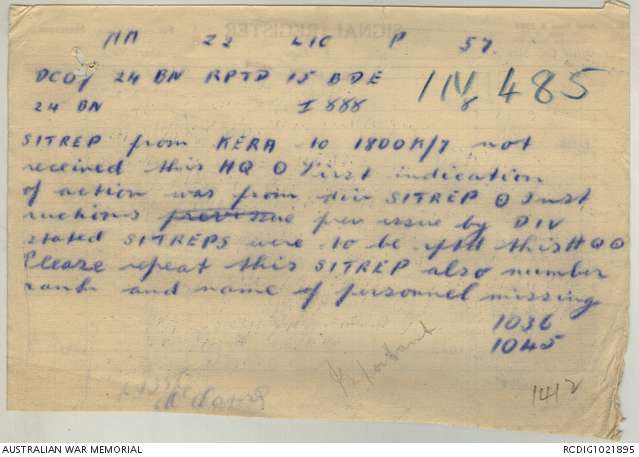 SIGNAL REGISTER
AA 22 LIC P 57
DCO1 24 BN RPTD 15 BDE
IN 485
24 BN I 888 8
SITREP from KERA to 1800K/7 not
received this HQ O First indication
of action was from div SITREP O Inst
ructions previous prev issue by DIV
stated SITREPS were to be rptd this HQ O
Please repeat this SITREP also number
rank and name of personnel missing
1036
1045
Important
1412
AUSTRALIAN WAR MEMORIAL
RCDIG1021895